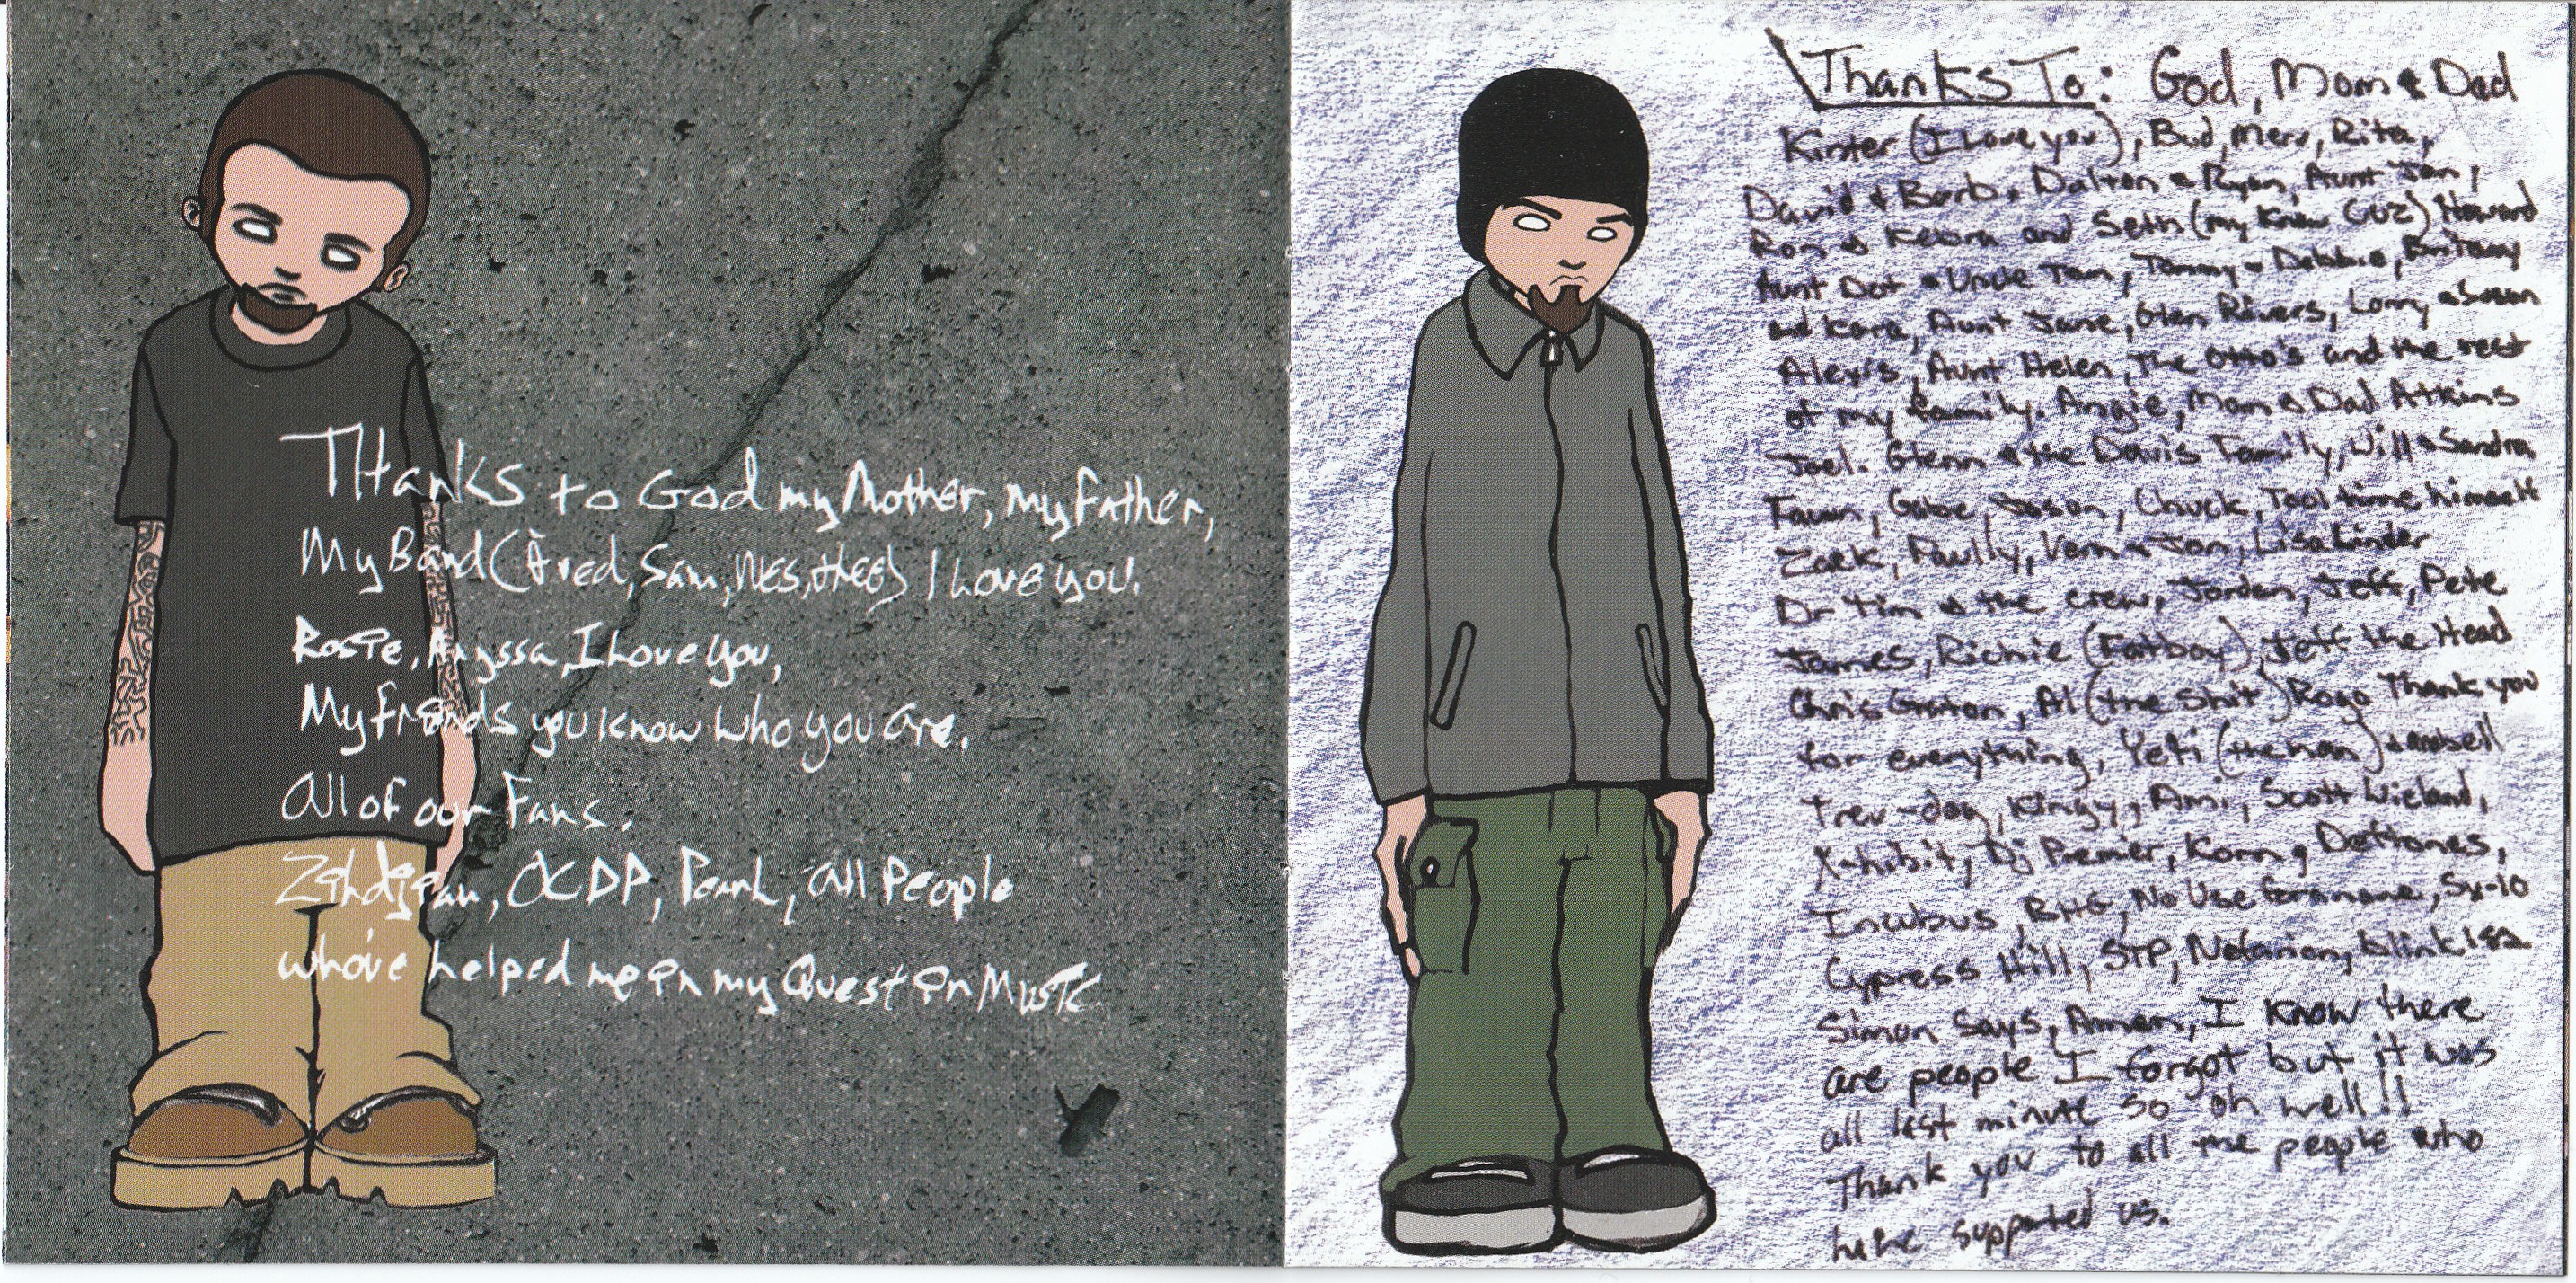 Thanks to God my Mother, my Father,
My Band (Fred, Sam, Wes, thee) I Love you.
Rosie, Alyssa, I Love you,
My friends you know who you are.
All of our Fans.
Zildjian, OCDP, Pearl, all People
who've helped me in my Quest in Music
Thanks To: God, Mom & Dad
Kinter (I Love you), Bud, Merv, Rita,
David & Barb, Dalton & Ryan, Aunt Jan,
Ron & and Seth (my Cuz) Howard
Aunt Dot & Uncle Tom, Tommy & Debbie, Britany
and Kara, Aunt Jane, Glen Rivers, Larry & Susan
Alexis, Aunt Helen, The Otto's and the rest
of my family. Angie, Mom & Dad Atkins
Joel. Glenn & the Davis Family, Will & Sandra
Fawn, Gabe, Jason, Chuck, Tool time himself
Zack, Paully, Vern & Jon, Lisa Linder
Dr Tim & the crew, Jordan, Jeff, Pete
James, Richie (Fatboy), Jeff the Head
Chris Al (the Shit) Rogo Thank you
for everything, Yeti (the man)
Trev-dog, Kingy, Ami, Scott Wieland,
X-hibit, Dj Premier, Korn, Deftones,
Incubus, BHG, No Use Foraname, Sx-10
Cypress Hill, STP, Notorion, blink 182
Simon Says, Aman, I know there
are people I forgot but it was
all last minute so oh well!!
Thank you to all the people who
have supported us.